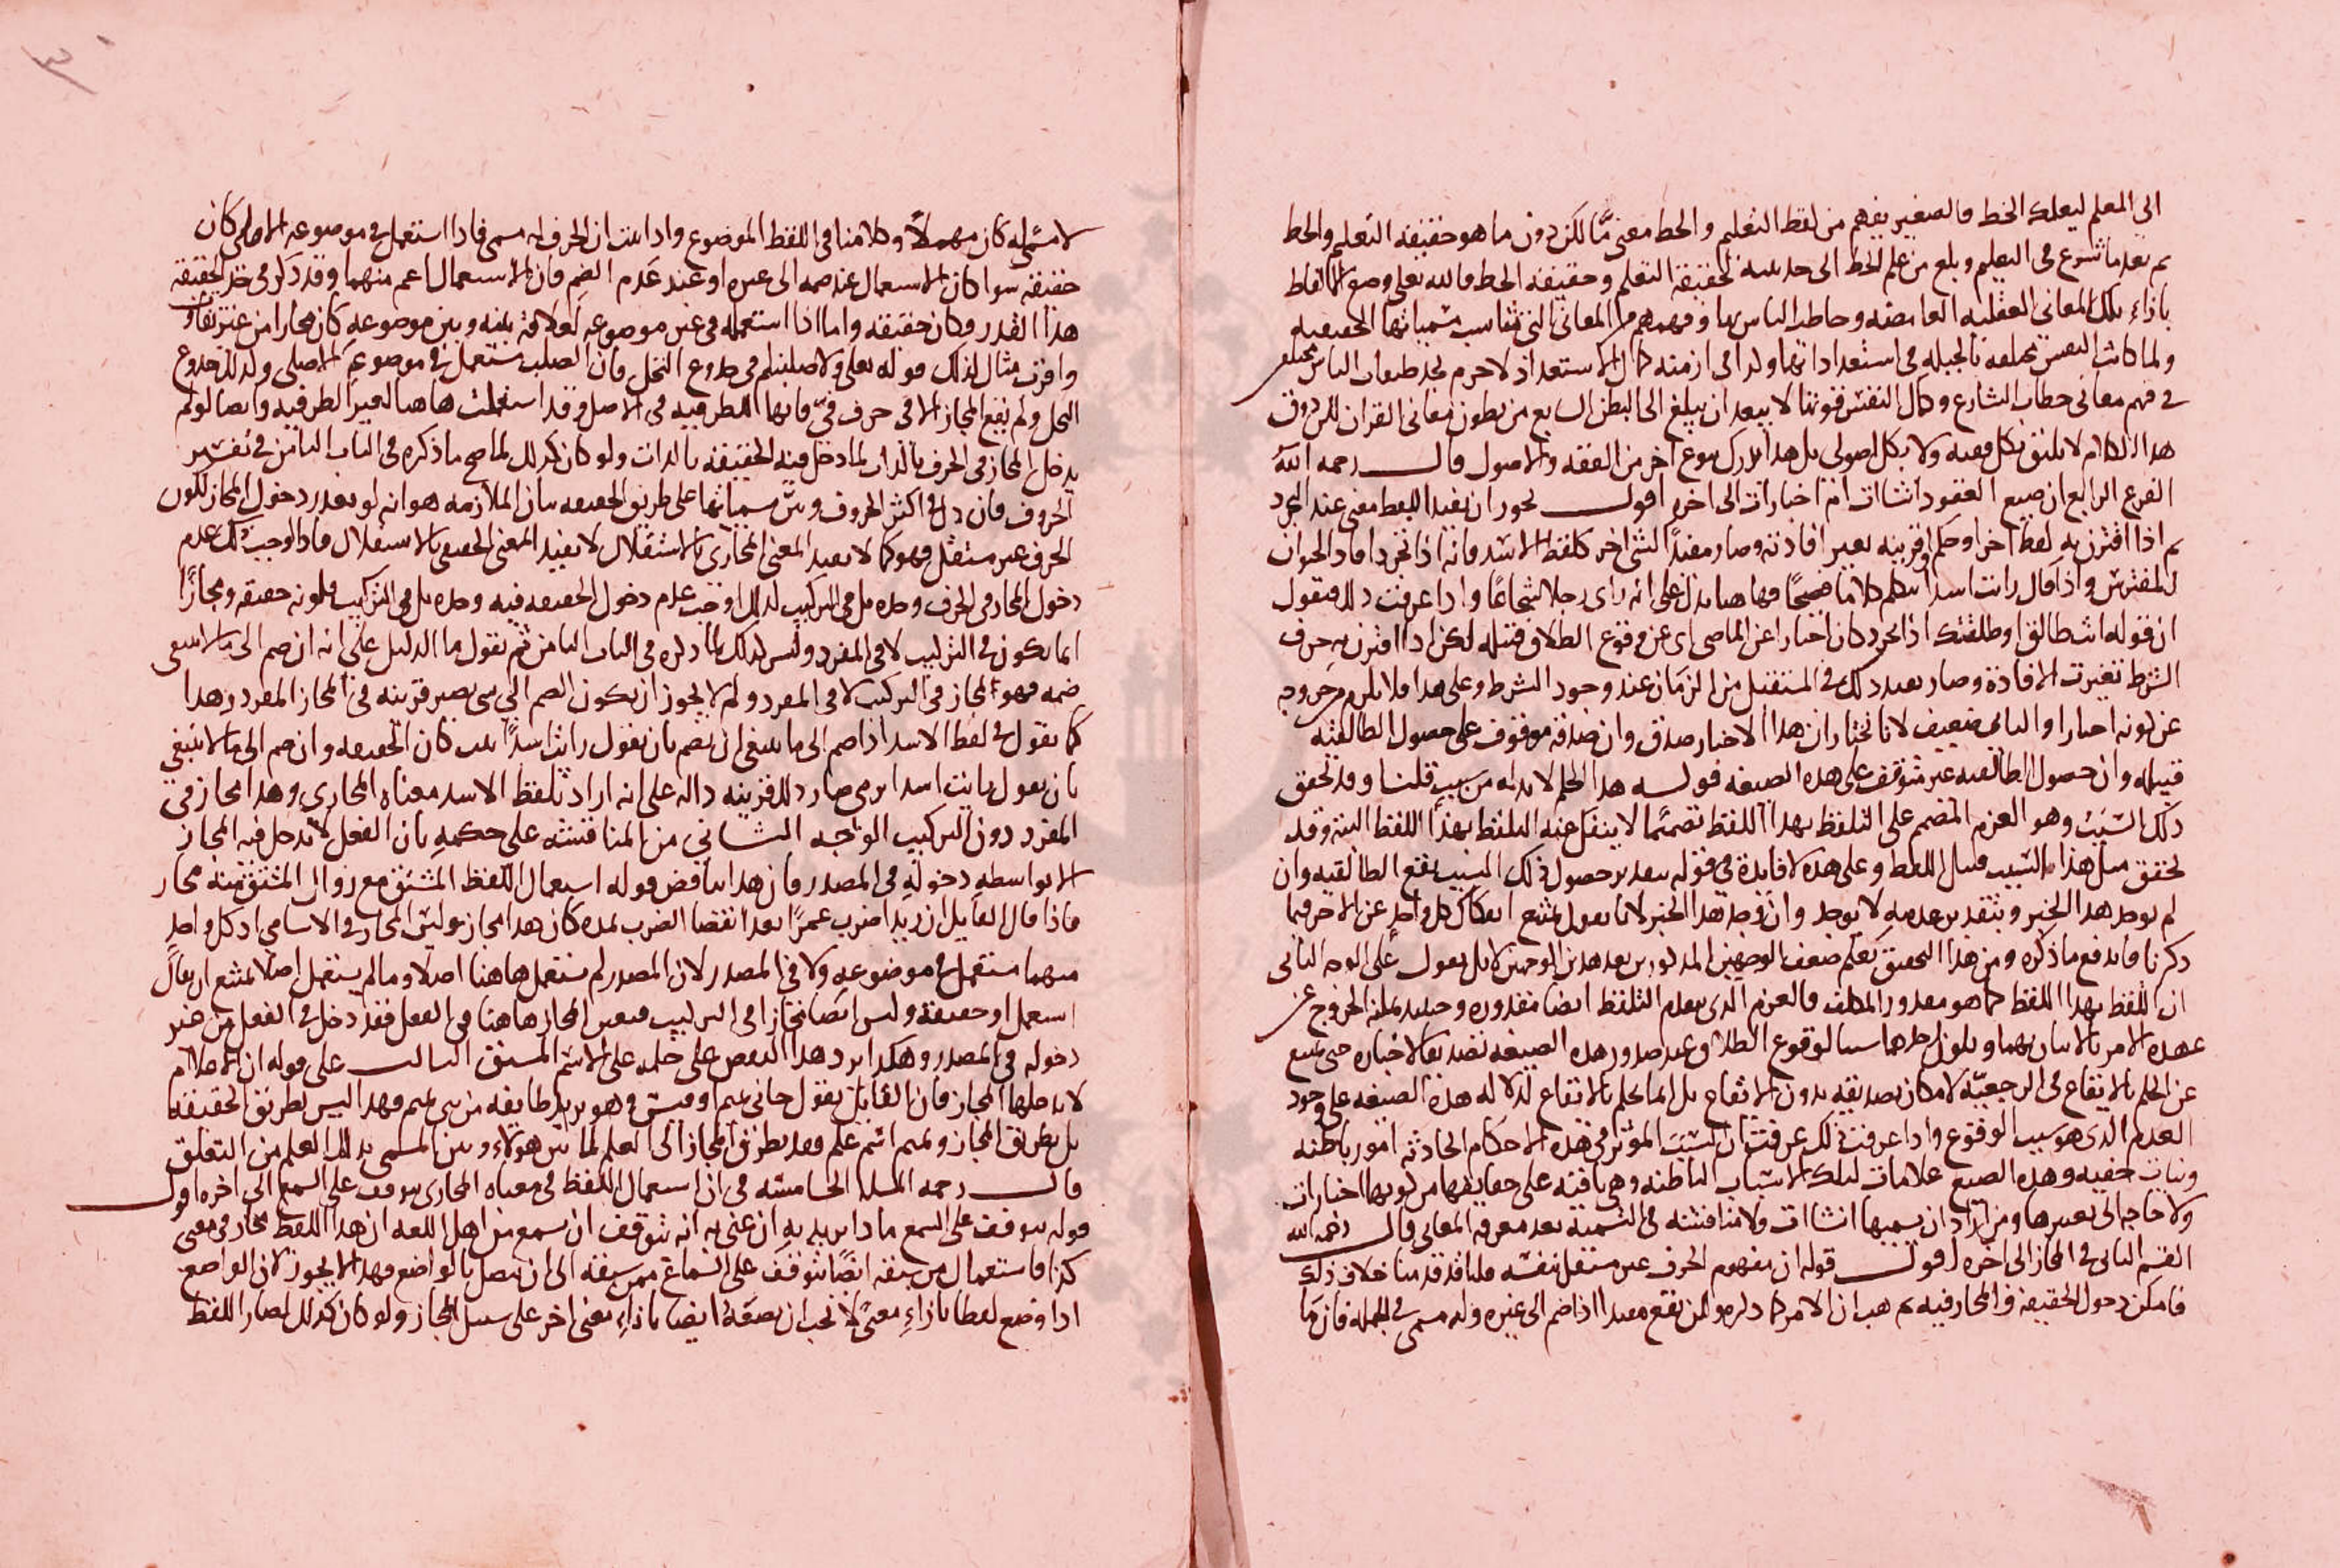 الى المعلم ليعلمك الخط فالصغير يفهم من لفظ التعليم والخط معنى مّا لكن دون ما هو حقيقة التعليم والخط
ثم بعد ما شرع فى التعليم وبلغ من علم الخط الى حد حقيقة التعلم وحقيقة الخط فالله تعلى وضع الالفاظ
بازاء تلك المعانى العقليه الغامضه وخاطب الناس بها وفهمهم من المعانى التى تناسب مسمياتها الحقيقيه
ولما كانت النفس مختلفه بالجبله فى استعداداتها ولذا فى ازمنه كمال الاستعداد لا جرم تجد طبقات الناس مختلفه
فى فهم معانى خطاب الشارع وكمال النفس قوتنا لا يبعد ان يبلغ الى البطن السابع من بطون معانى القران للذوق
هذا الكلام لا يليق بكل فقيه ولا بكل اصولى بل هذا يدرك بنوع اخر من الفقه والاصول قال رحمه الله
الفرع الرابع ان صيغ العقود انشاات ام اخبارات الى اخره اقول يجوز ان يفيد اللفظ معنى عند التجرد
ثم اذا اقترن به لفظ اخر او حكم او قرينه تغير افادته وصار مفيدًا لشئ اخر كلفظ الاسد فانه اذا تجرد افاد الحيوان
المفترس واذا قال رايت اسدا يتكلم كلاما فصيحًا فهاهنا يدل على انه راى رجلا شجاعًا واذا عرفت ذلك فنقول
ان قوله انت طالق او طلقتك اذا تجرد كان اخبارا عن الماضى اى عن وقوع الطلاق قبله لكن اذا اقترن به حرف
الشرط تغيرت الافادة وصار يفيد ذلك فى المستقبل من الزمان عند وجود الشرط وعلى هذا فلا يلزم من خروجه
عن كونه اخبارا والثانى ضعيف لانا نختار ان هذا الاخبار صدق وان صدقه موقوف على حصول الطالقيه
قبله وان حصول الطالقيه غير متوقف على هذه الصيغه قوله هذا الحكم لا بد له من سبب قلنا وقد تحقق
ذلك السبب وهو العزم المصمم على التلفظ بهذا اللفظ تصميمًا لا ينفك عنه التلفظ بهذا اللفظ البته وقد
تحقق مثل هذا السبب قبل اللفظ وعلى هذه لا فايدة فى قوله بتقدير حصول ذلك السبب يقع الطالقيه وان
لم يوجد هذا الخبر وبتقدير عدمه لا يوجد وان وجد هذا الخبر لانا نقول يمتنع انفكاك كل واحد عن الاخر فيما
ذكرنا فاندفع ما ذكره ومن هذا التحقيق تعلم ضعف الوجهين المذكورين بعد هذين الوجهين لا بل نقول على الوجه الثانى
ان التلفظ بهذا اللفظ كما هو مقدور المكلف فالعزم الذى يتقدم التلفظ ايضا مقدوره وحينئذ يمكنه الخروج عن
عهدة الامر بالاتيان بهما ويكون احدهما سببا لوقوع الطلاق وعند صدور هذه الصيغه تصديقا لاخباره حتى يمتنع
عن الحكم بالايقاع فى الرجعيّة لامكان تصديقه بدون الايقاع بل انما نحكم بالايقاع لدلاله هذه الصيغه على وجود
العدم الذى هو سبب الوقوع واذا عرفت ذلك عرفت ان السبب المؤثر فى هذه الاحكام الحادثه امور باطنه
ونيات خفيه وهذه الصيغ علامات لتلك الاسباب الباطنه وهى باقيه على حقايقها من كونها اخبارات
ولا حاجه الى تغييرها ومن اراد ان يسميها انشاات فلا منافسة فى التسمية بعد معرفه المعانى قال رحمه الله
القسم الثانى فى المجاز الى اخره اقول قوله ان مفهوم الحرف غير مستقل بنفسه قلنا قد قدمنا خلاف ذلك
فامكن دخول الحقيقة والمجاز فيه ثم هب ان الامر كما ذكرتم لكن يقع مفيدا اذا ضم الى غيره وله مسمى فى الجمله فان ما
لا مسمى له كان مهملًا وكلامنا فى اللفظ الموضوع واذا ثبت ان الحرف له مسمى فاذا استعمل فى موضوعه الاصلى كان
حقيقه سوا كان الاستعمال عند ضمه الى غيره او عند عدم الضم فان الاستعمال اعم منهما وقد ذكر فى حد الحقيقة
هذا القدر وكان حقيقه واما اذا استعمله فى غير موضوعه لعلاقة بينه وبين موضوعه كان مجازا من غير تفاوت
وافرق مثال لذلك قوله تعلى ولاصلبنكم فى جذوع النخل فان الصلب مستعمل فى موضوعه الاصلى وكذلك جذوع
النخل ولم يقع المجاز الا فى حرف فى فانها للظرفيه فى الاصل وقد استعملت هاهنا لغير الظرفيه وايضا لو لم
يدخل المجاز فى الحرف بالذات لما دخل فيه الحقيقه بالذات ولو كان كذلك لما صح ما ذكره فى الباب الثامن فى تفسير
الحروف فان دل فى اكثر الحروف وبيّن مسمياتها على طريق الحقيقه بيان الملازمه هو انه لو تعذر دخول المجاز لكون
الحرف غير مستقل فهو كما لا يفيد المعنى المجازى بالاستقلال لا يفيد المعنى الحقيقى بالاستقلال فاذا اوجب ذلك عدم
دخول المجاز فى الحرف وحده بل فى التركيب لذلك اوجب عدم دخول الحقيقه فيه وحده بل فى التركيب فكونه حقيقه ومجازًا
انما يكون فى التركيب لا فى المفرد وليس كذلك لما ذكره فى الباب الثامن ثم نقول ما الدليل على انه ان ضم الى ما لا ينبغى
ضمه فهو المجاز فى التركيب لا فى المفرد ولم لا يجوز ان يكون الضم الى شى يصير قرينه فى المجاز المفرد وهذا
كما نقول فى لفظ الاسد اذا ضم الى ما ينبغى ان يضم بان نقول رايت اسدًا يثب كان الحقيقه وان ضم الى ما لا ينبغى
بان نقول رايت اسدا يرمى صار ذلك قرينه داله على انه اراد بلفظ الاسد معناه المجازى وهذا مجاز فى
المفرد دون التركيب الوجه الثانى من المناقشه على حكمه بان الفعل لا يدخل فيه المجاز
الا بواسطه دخوله فى المصدر فان هذا يناقض قوله استعمال اللفظ المشتق مع زوال المشتق منه مجاز
فاذا قال القايل ان زيدا ضرب عمرًا بعد انقضا الضرب بمده كان هذا مجازا وليس المجاز فى الاسامى اذ كل واحد
منهما مستعمل فى موضوعه ولا فى المصدر لان المصدر لم يستعمل هاهنا اصلا وما لم يستعمل اصلًا يمتنع ان يقال
استعمل او حقيقة وليس ايضا مجازا فى التركيب فتعين المجاز هاهنا فى الفعل فقد دخل فى الفعل من غير
دخوله فى المصدر وهكذا يرد هذا النقض على حكمه على الاسم المشتق الثالث على قوله ان الاعلام
لا يدخلها المجاز فان القايل يقول جانى تميم او قيس وهو يريد طايفه من بنى تميم فهذا ليس بطريق الحقيقة
بل بطريق المجاز وتميم اسم علم وقد تطرق المجاز الى العلم لما بين هؤلاء وبين المسمى بذلك العلم من التعلق
قال رحمه المسلة الخامسه فى ان استعمال اللفظ فى معناه المجازى يتوقف على السمع الى اخره اقول
قوله يتوقف على السمع ماذا يريد به ان عنى به انه يتوقف ان يسمع من اهل اللغه ان هذا اللفظ مجاز فى معنى
كذا فاستعمال من سبقه ايضًا يتوقف على السماع ممن سبقه الى ان يتصل بالواضع فهذا لا يجوز لان الواضع
اذا وضع لفظا بازاءِ معنًى لا يجب ان يضعهُ ايضا بازاءِ معنى اخر على سبيل المجاز ولو كان كذلك لصار اللفظ